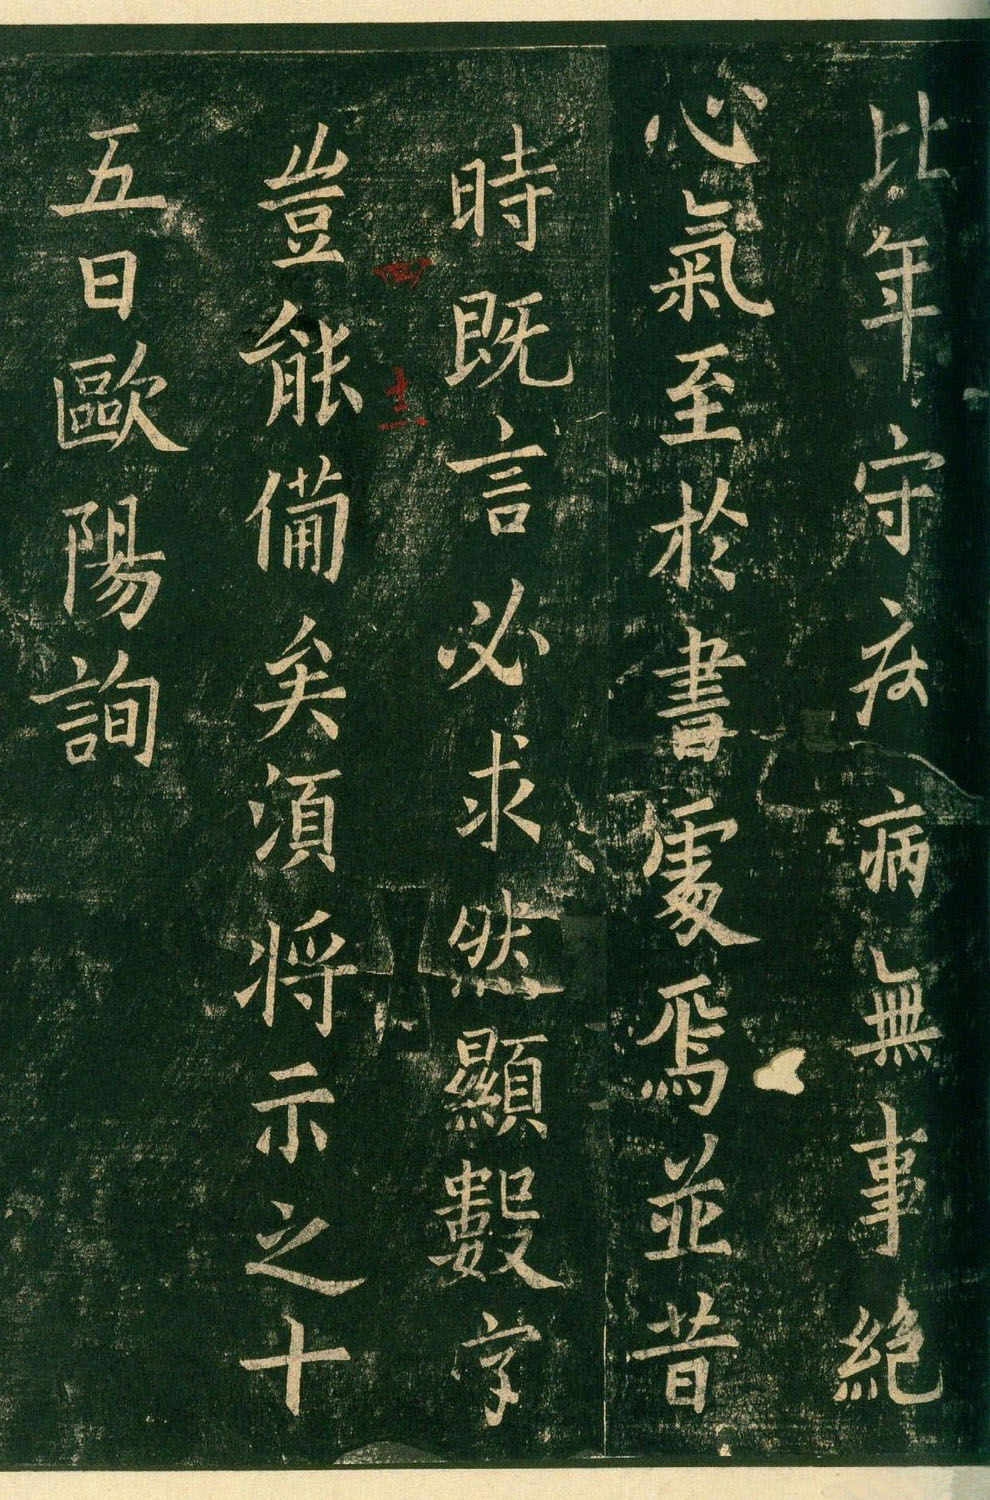 比年守疾病無事絕
心氣至於書處焉並昔
時既言必求然顯數字
豈能備矣須將示之十
五日歐陽詢